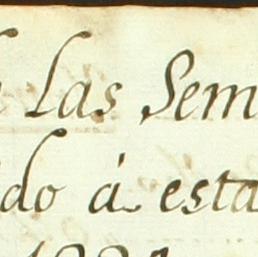 las Sem
do á esta